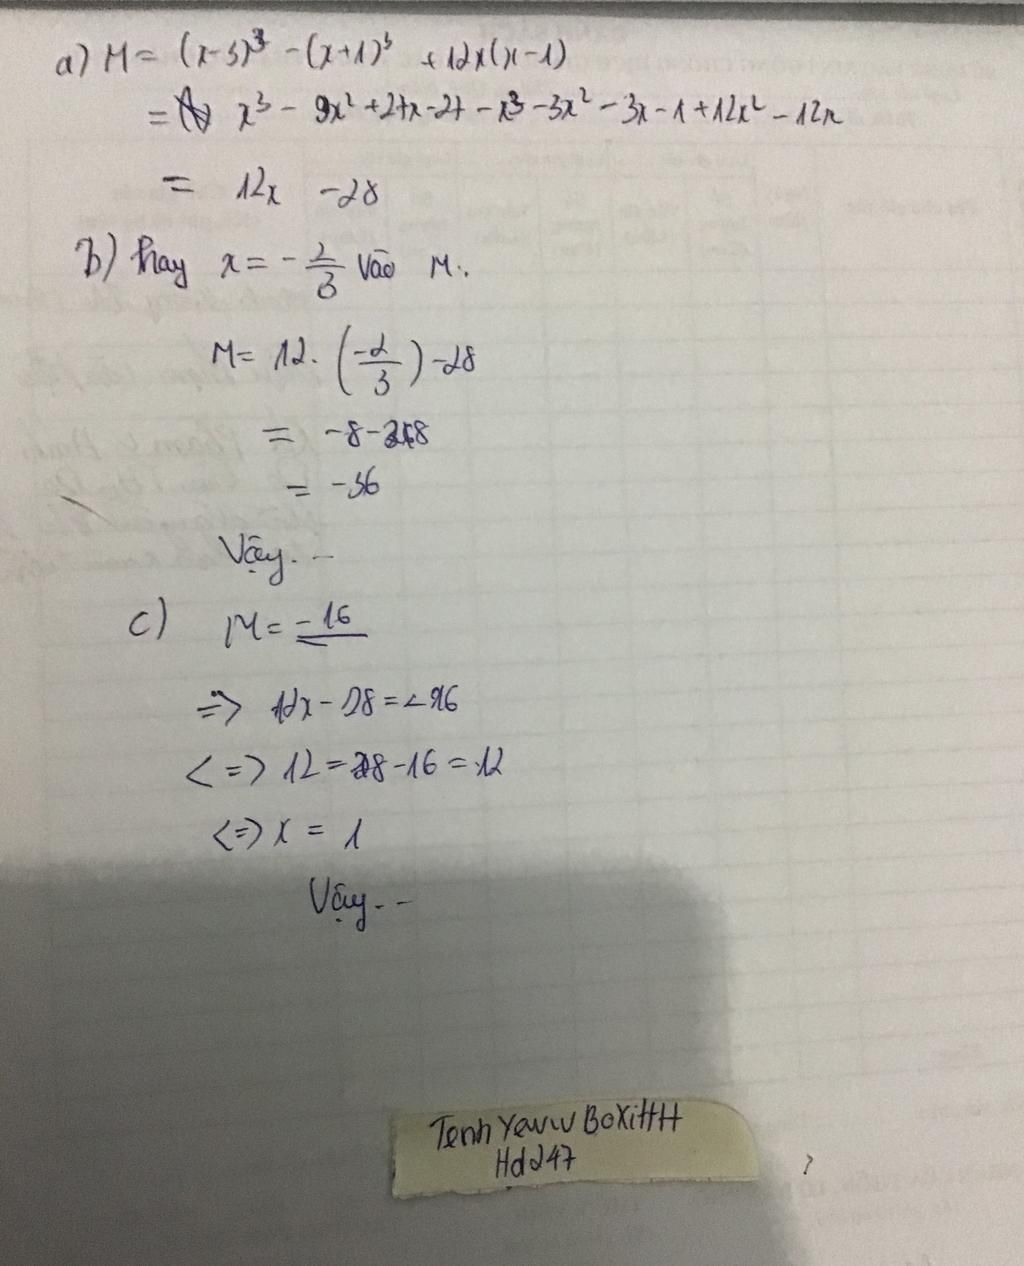 a) M = (x-3)³ - (x+1)³ + 12x(x-1)
= x³ - 9x² + 27x - 27 - x³ - 3x² - 3x - 1 + 12x² - 12x
= 12x - 28
b) Thay x = -2/3 vào M.
M = 12. (-2/3) - 28
= -8 - 28
= -36
Vậy...
c) M = -16
=> 12x - 28 = -16
<=> 12 = 28 - 16 = 12
<=> x = 1
Vậy...
Tenh Yewww BoXiHH
Hd247